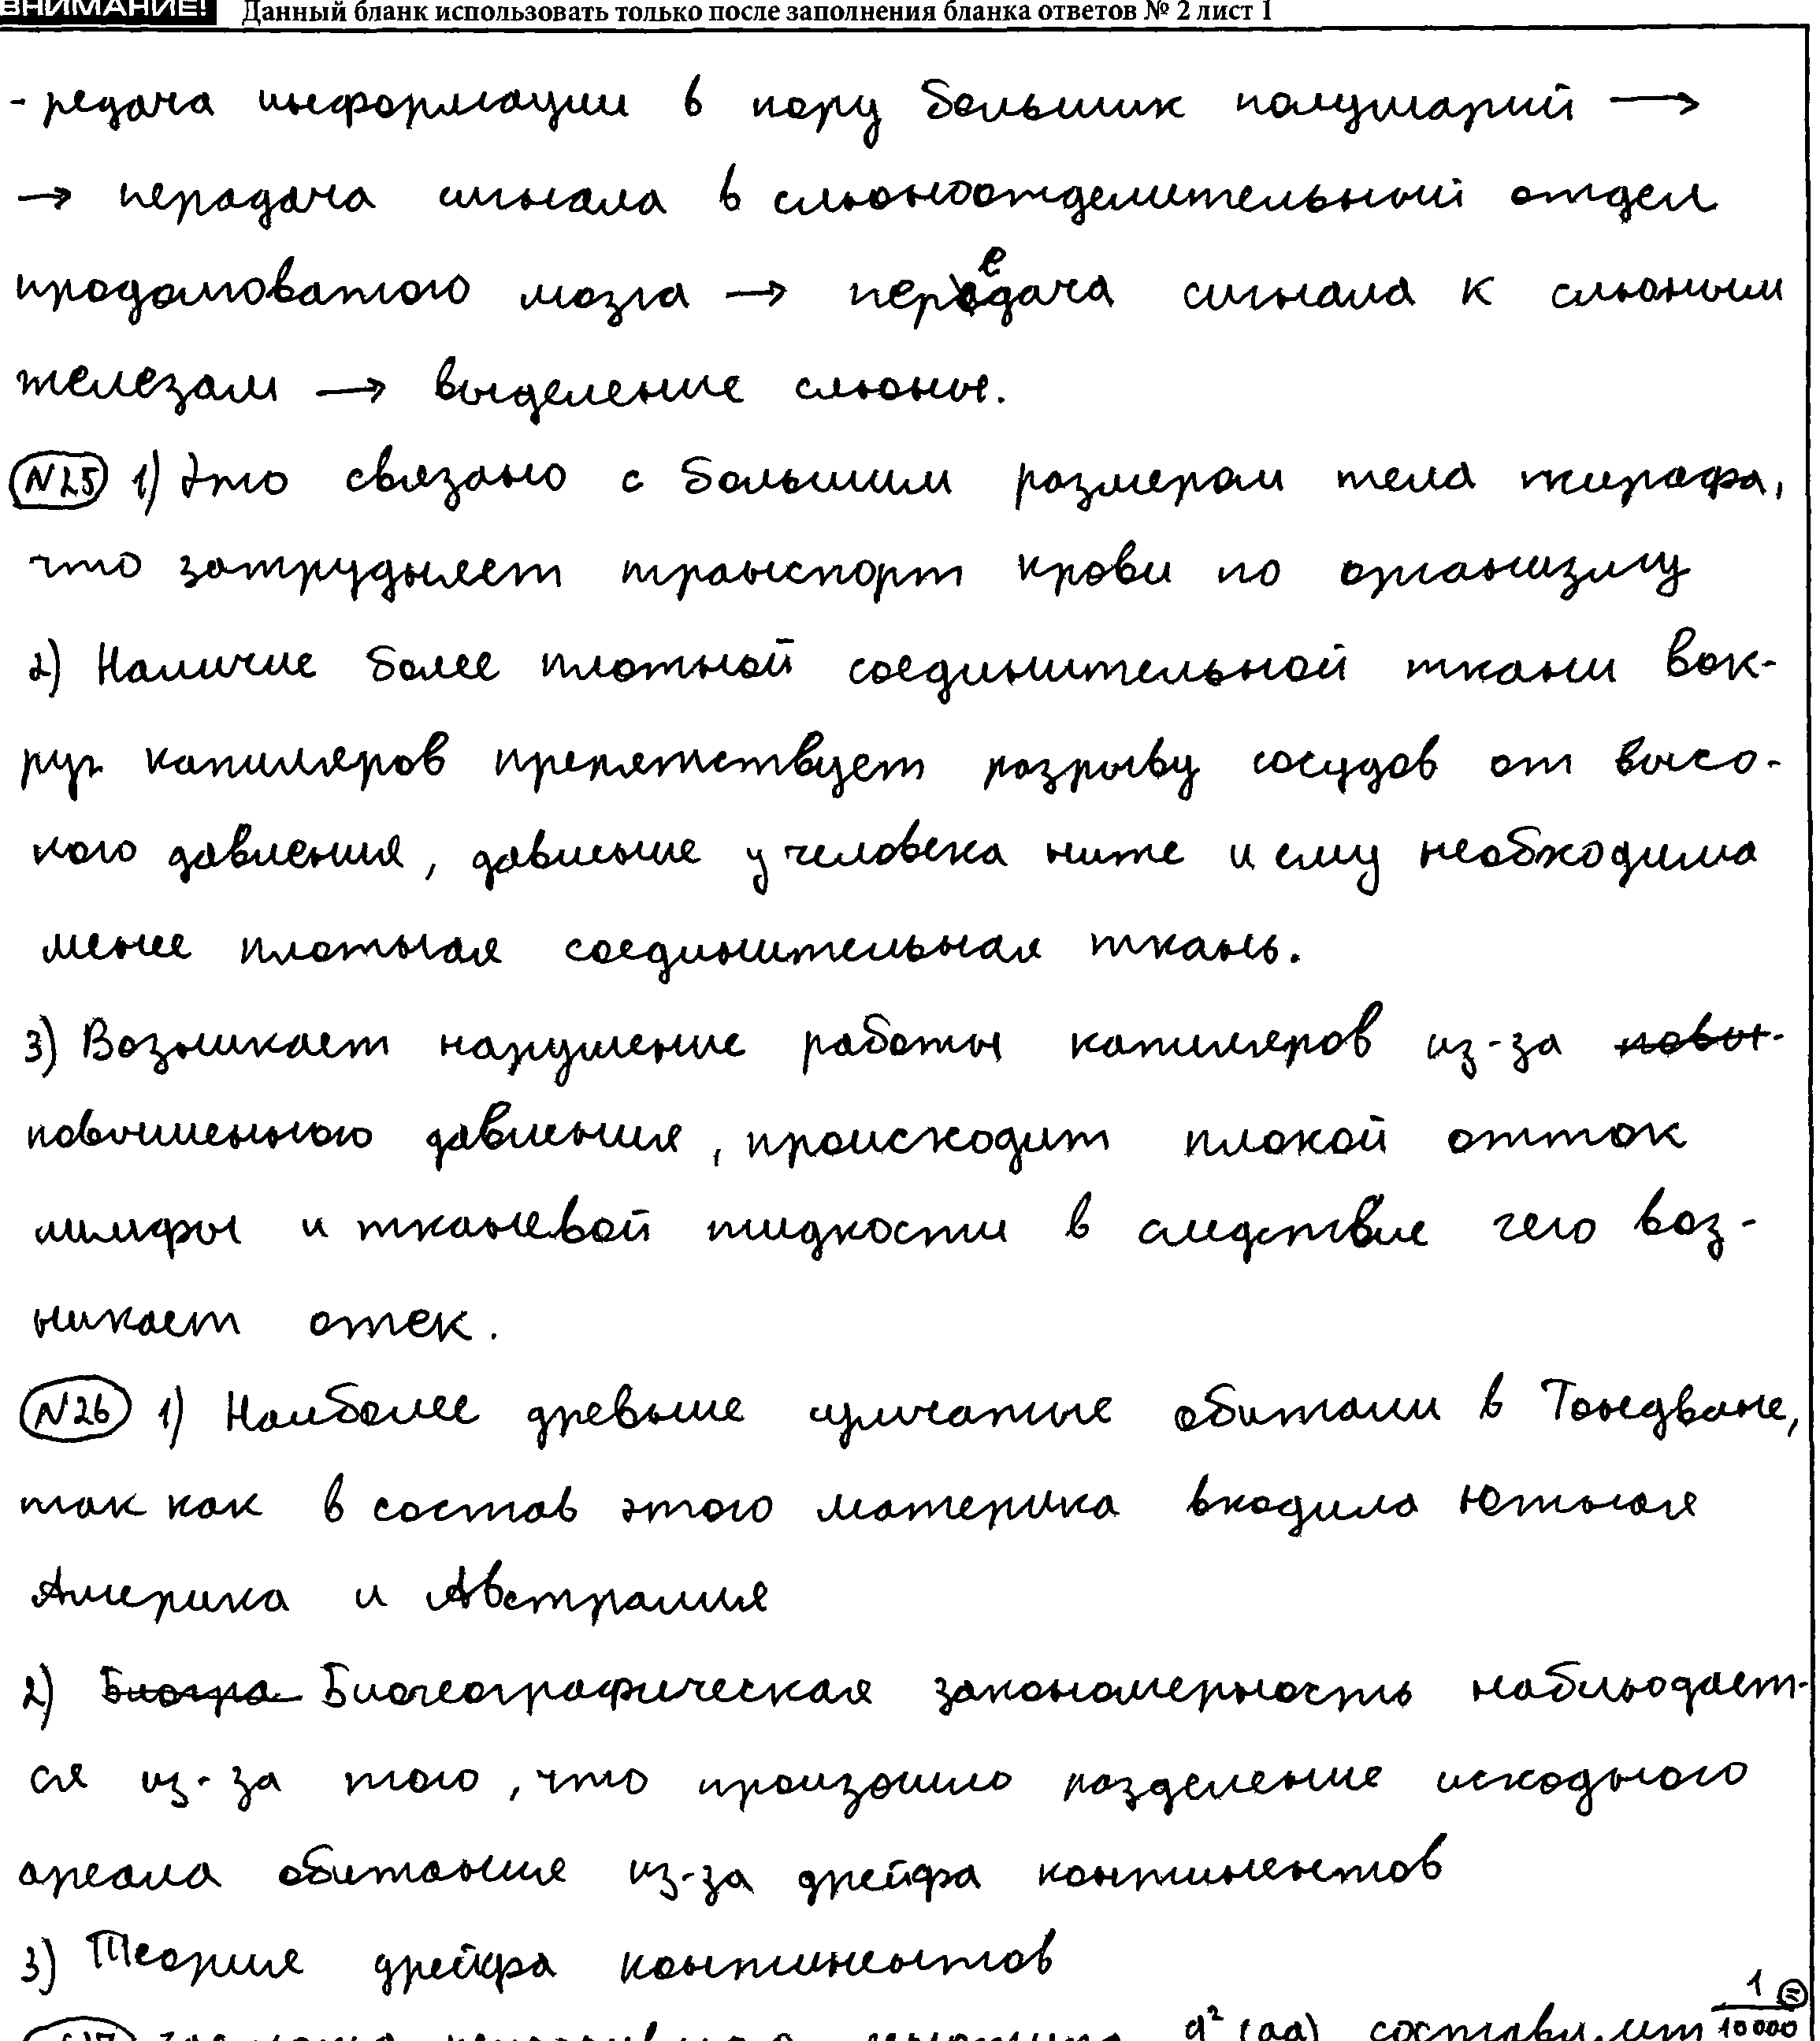 ВНИМАНИЕ! Данный бланк использовать только после заполнения бланка ответов № 2 лист 1
- редача информации в кору больших полушарий →
→ передача сигнала в слюноотделительный отдел
продолговатого мозга → передача сигнала к слюным
железам → выделение слюны.
N25 1) Это связано с большим размером тела жирафа,
что затрудняет транспорт крови по организму
2) Наличие более плотной соединительной ткани вок-
руг капиляров препятствует разрыву сосудов от высо-
кого давления, давление у человека ниже и ему необходима
менее плотная соединительная ткань.
3) Возникает нарушение работы капиляров из-за повы-
повышенного давления, происходит плохой отток
лимфы и тканевой жидкости в следствие чего воз-
никает отек.
N26 1) Наиболее древние сумчатые обитали в Гондване,
так как в состав этого материка входила Южная
Америка и Австралия
2) Биогра Биогеографическая закономерность наблюдает-
ся из-за того, что произошло разделение исходного
ареала обитания из-за дрейфа континентов
3) Теория дрейфа континентов
q² (aa) составил 1/10000 =